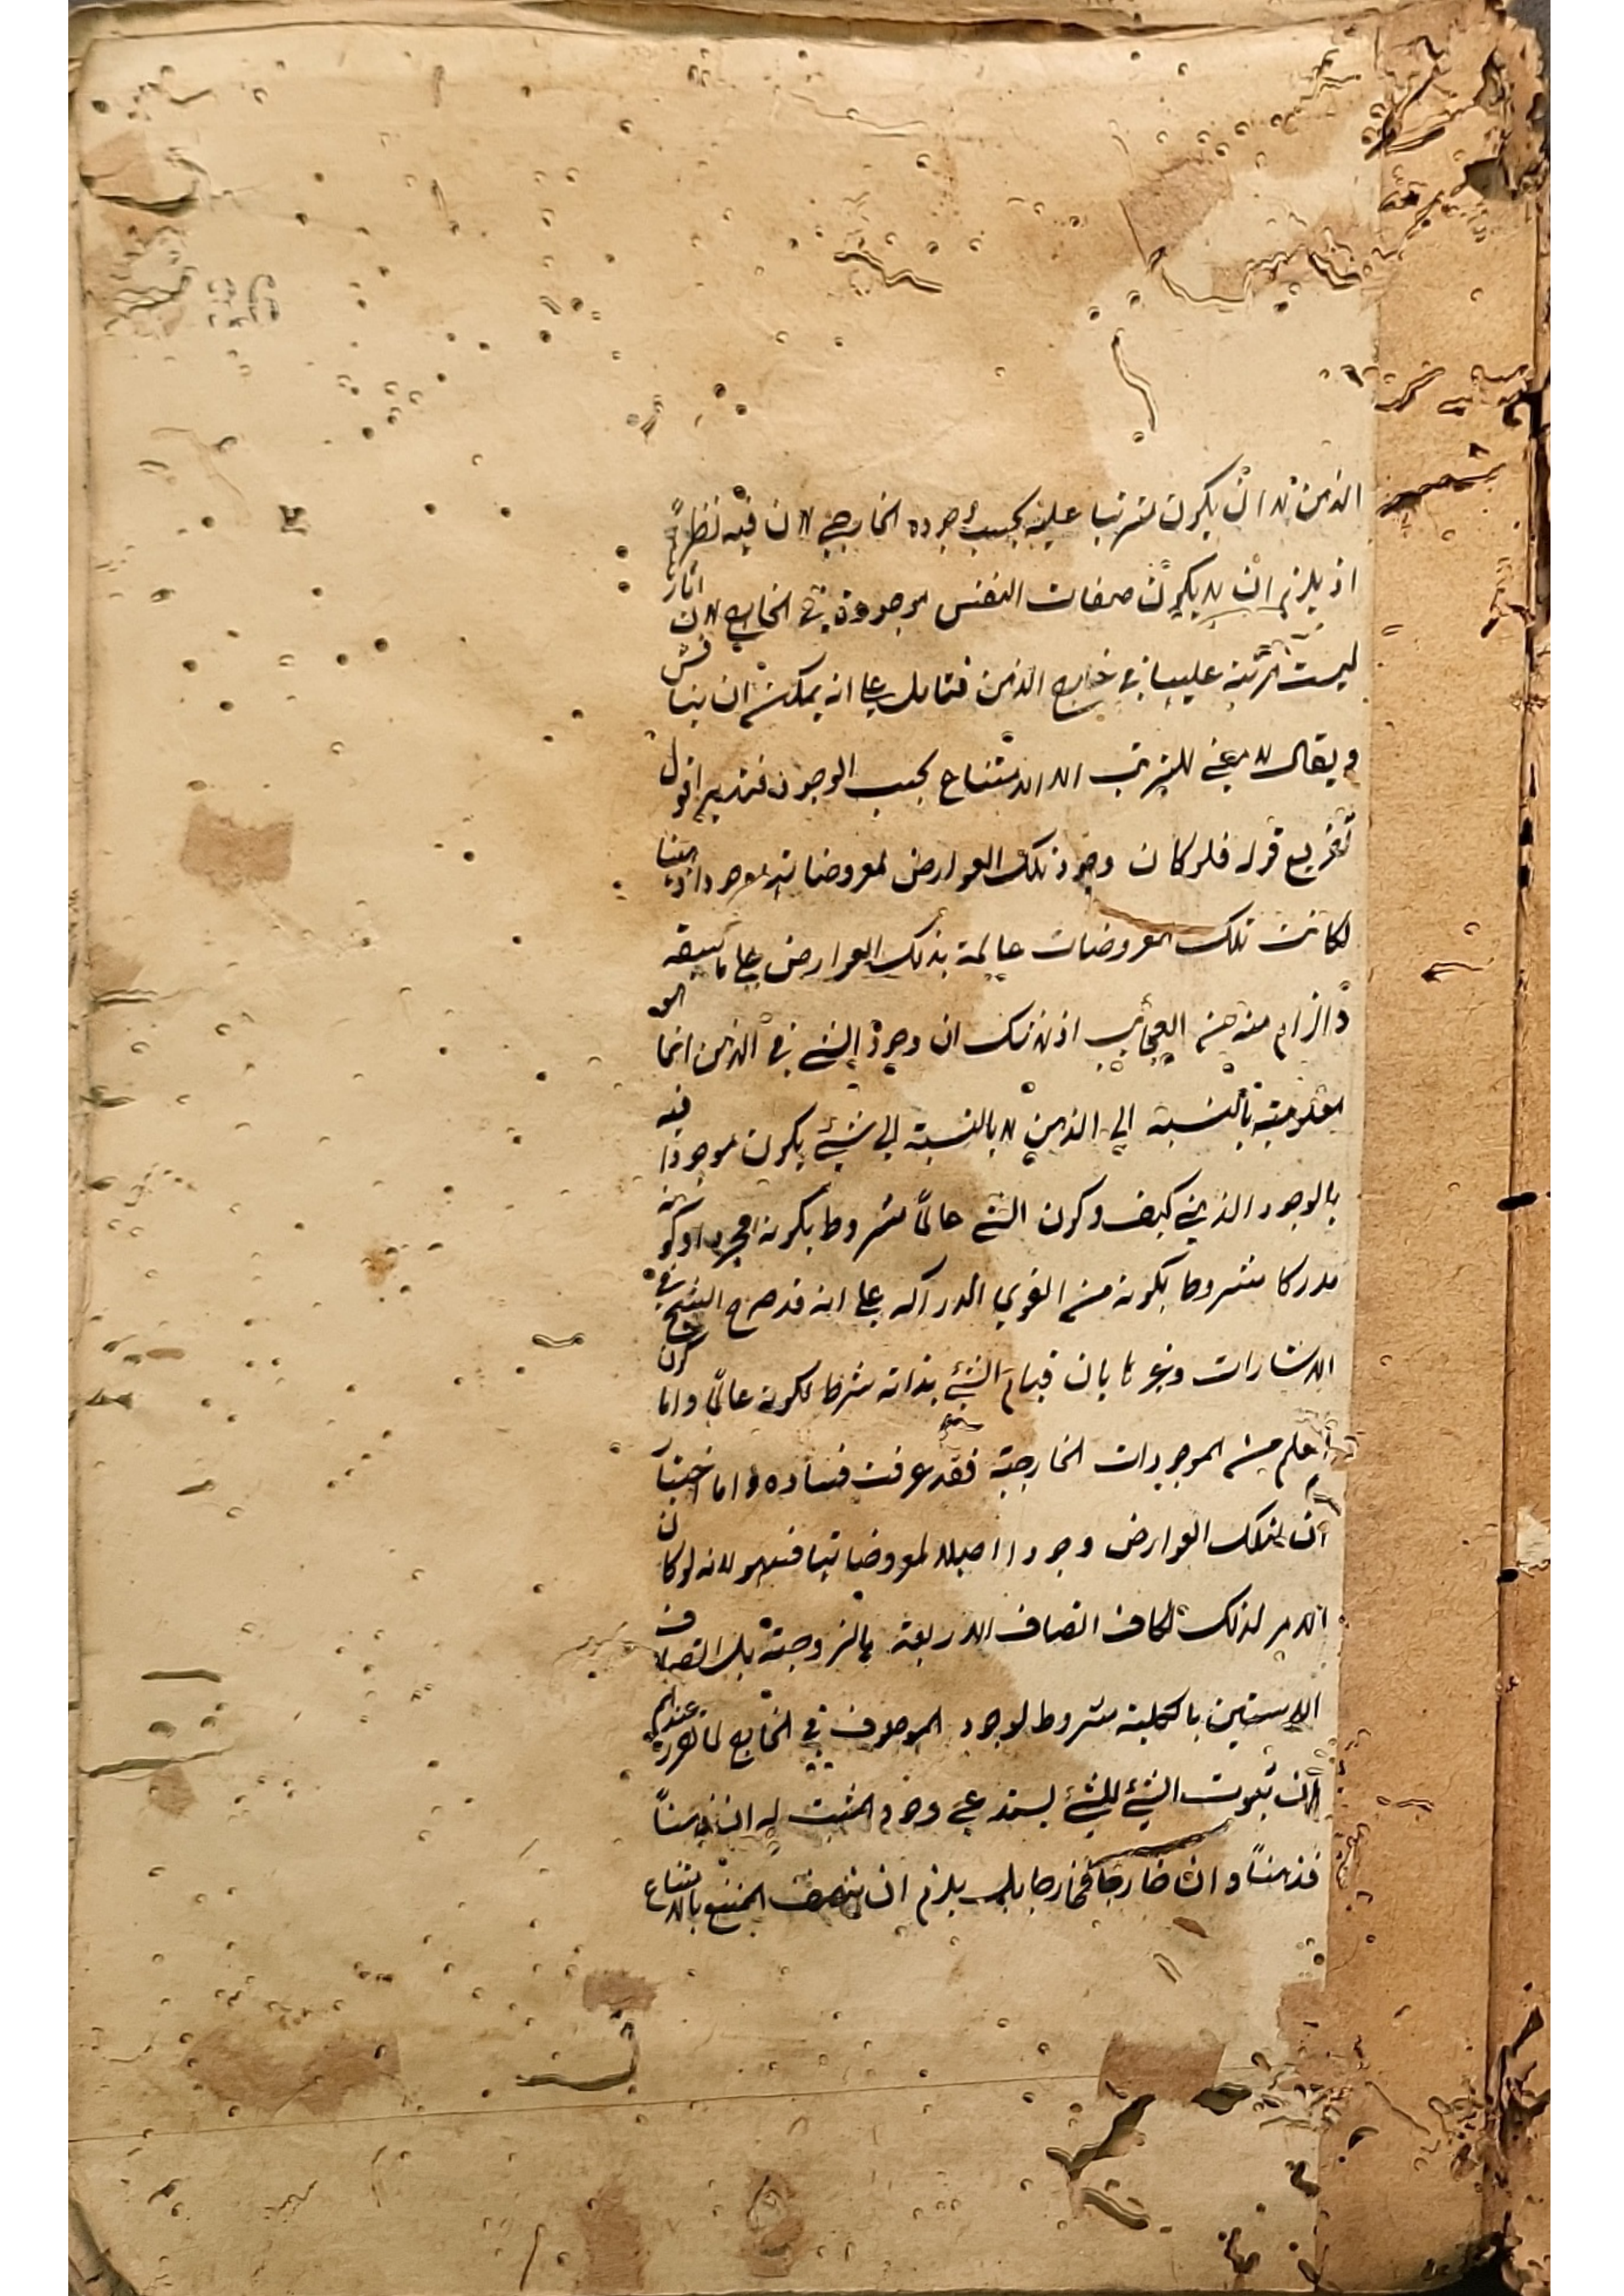 الذهن لا ان يكون مترتبا عليه بحسب وجوده الخارجي لان فيه نظرا
اذ يلزم ان لا يكون صفات النفس موجودة في الخارج لان اثار
ليست مترتبة عليها في خارج الذهن فتامل على انه يمكن ان يناقش
ويقال لا معنى للترتب الا الاستتباع بحسب الوجود فتدبر اقول
تفريع قوله فلو كان وجود تلك العوارض لمعروضاتها موجودا ذهنيا
لكانت تلك المعروضات عالمة بتلك العوارض على ما سبقه
منه من العجائب اذ لا شك ان وجود الشئ في الذهن انما
معلوميته بالنسبة الى الذهن لا بالنسبة الى شئ يكون موجودا فيه
بالوجود الذهني كيف وكون الشئ عالما مشروط بكونه مجردا وكونه
مدركا مشروط بكونه من القوى الدراكه على انه قد صرح الشيخ في
الاشارات وغيرها بان قيام الشئ بذاته شرط لكونه عالما واما كون
العلم من الموجودات الخارجية فقد عرفت فساده واما اختيار
ان لتلك العوارض وجودا اصيلا لمعروضاتها فسهو لانه لو كان
الامر لذلك لكان اتصاف الاربعة بالزوجية بل اتصاف
بالكلية مشروط لوجود الموصوف في الخارج لما تقرر عندهم
ان ثبوت الشئ للشئ يستدعي وجود المثبت له ان ذهنا
فذهنا وان خارجا فخارجا بل يلزم ان يتصف الممتنع بالامتناع